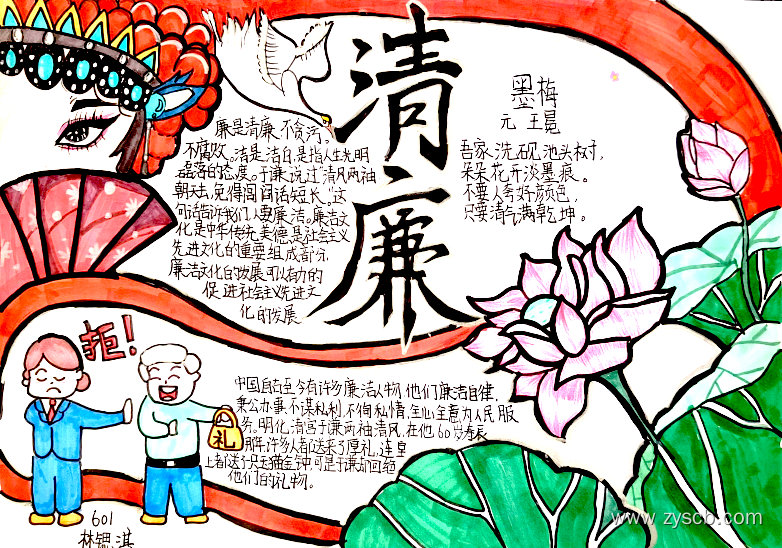 清廉
廉是清廉,不贪污。
不腐败。洁是洁白,是指人生光明
磊落的态度。于谦说过"清风两袖
朝天去,免得阎闾话短长。"这
句话告诉我们,人要廉洁。廉洁文
化是中华传统美德,是社会主义
先进文化的重要组成部分,
廉洁文化的发展可以有力的
促进社会主义先进文
化的发展
墨梅
元 王冕
吾家洗砚池头树,
朵朵花开淡墨痕。
不要人夸好颜色,
只要清气满乾坤。
拒!
礼
中国自古至今有许多廉洁人物,他们廉洁自律,
秉公办事,不谋私利,不徇私情,全心全意为人民服
务。明化清官于谦两袖清风,在他60岁寿辰
那年,许多人都送来了厚礼,连皇
上都送了只玉猫金钟,可是于谦却回绝
他们的礼物。
601
林锶淇
www.zyscb.com